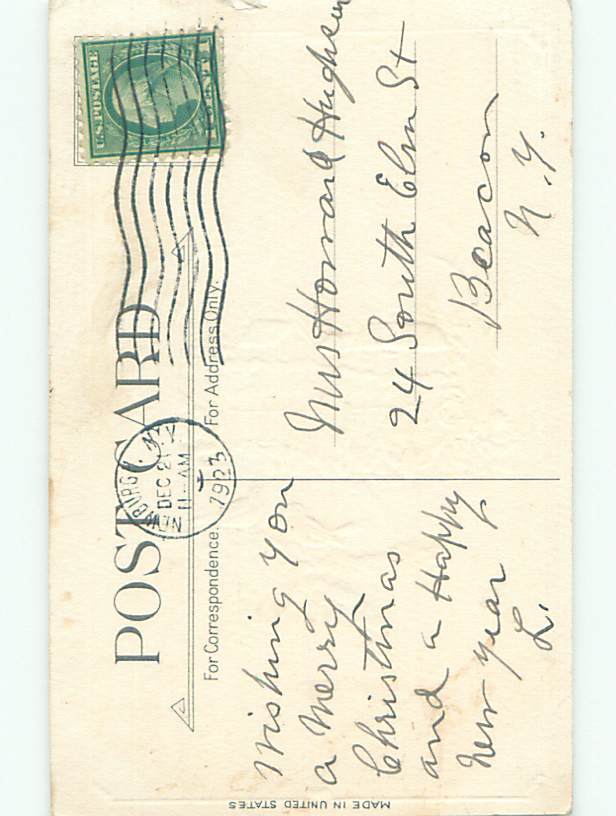 POST CARD
For Correspondence.
For Address Only.
U.S. POSTAGE
DEC 21
11 AM
1923
Wishing you
a Merry
Christmas
and a Happy
New Year
L.
Mrs Howard
24 South Elm St
Beacon
N.Y.
MADE IN UNITED STATES